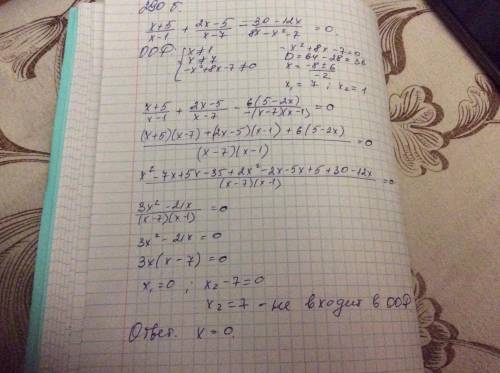 290 б
(x+5)/(x-1) + (2x-5)/(x-7) - (30-12x)/(8x-x²-7) = 0.
ООФ: { x≠1
x≠7
-x²+8x-7≠0
-x²+8x-7=0
D=64-28=36
x = (-8±6)/(-2)
x₁ = 7 ; x₂ = 1
(x+5)/(x-1) + (2x-5)/(x-7) - 6(5-2x)/(-(x-7)(x-1)) = 0
((x+5)(x-7)+(2x-5)(x-1)+6(5-2x))/((x-7)(x-1)) = 0
(x²-7x+5x-35+2x²-2x-5x+5+30-12x)/((x-7)(x-1)) = 0
(3x²-21x)/((x-7)(x-1)) = 0
3x²-21x=0
3x(x-7)=0
x₁=0 ; x₂-7=0
x₂=7 - не входит в ООФ.
Ответ. x=0.